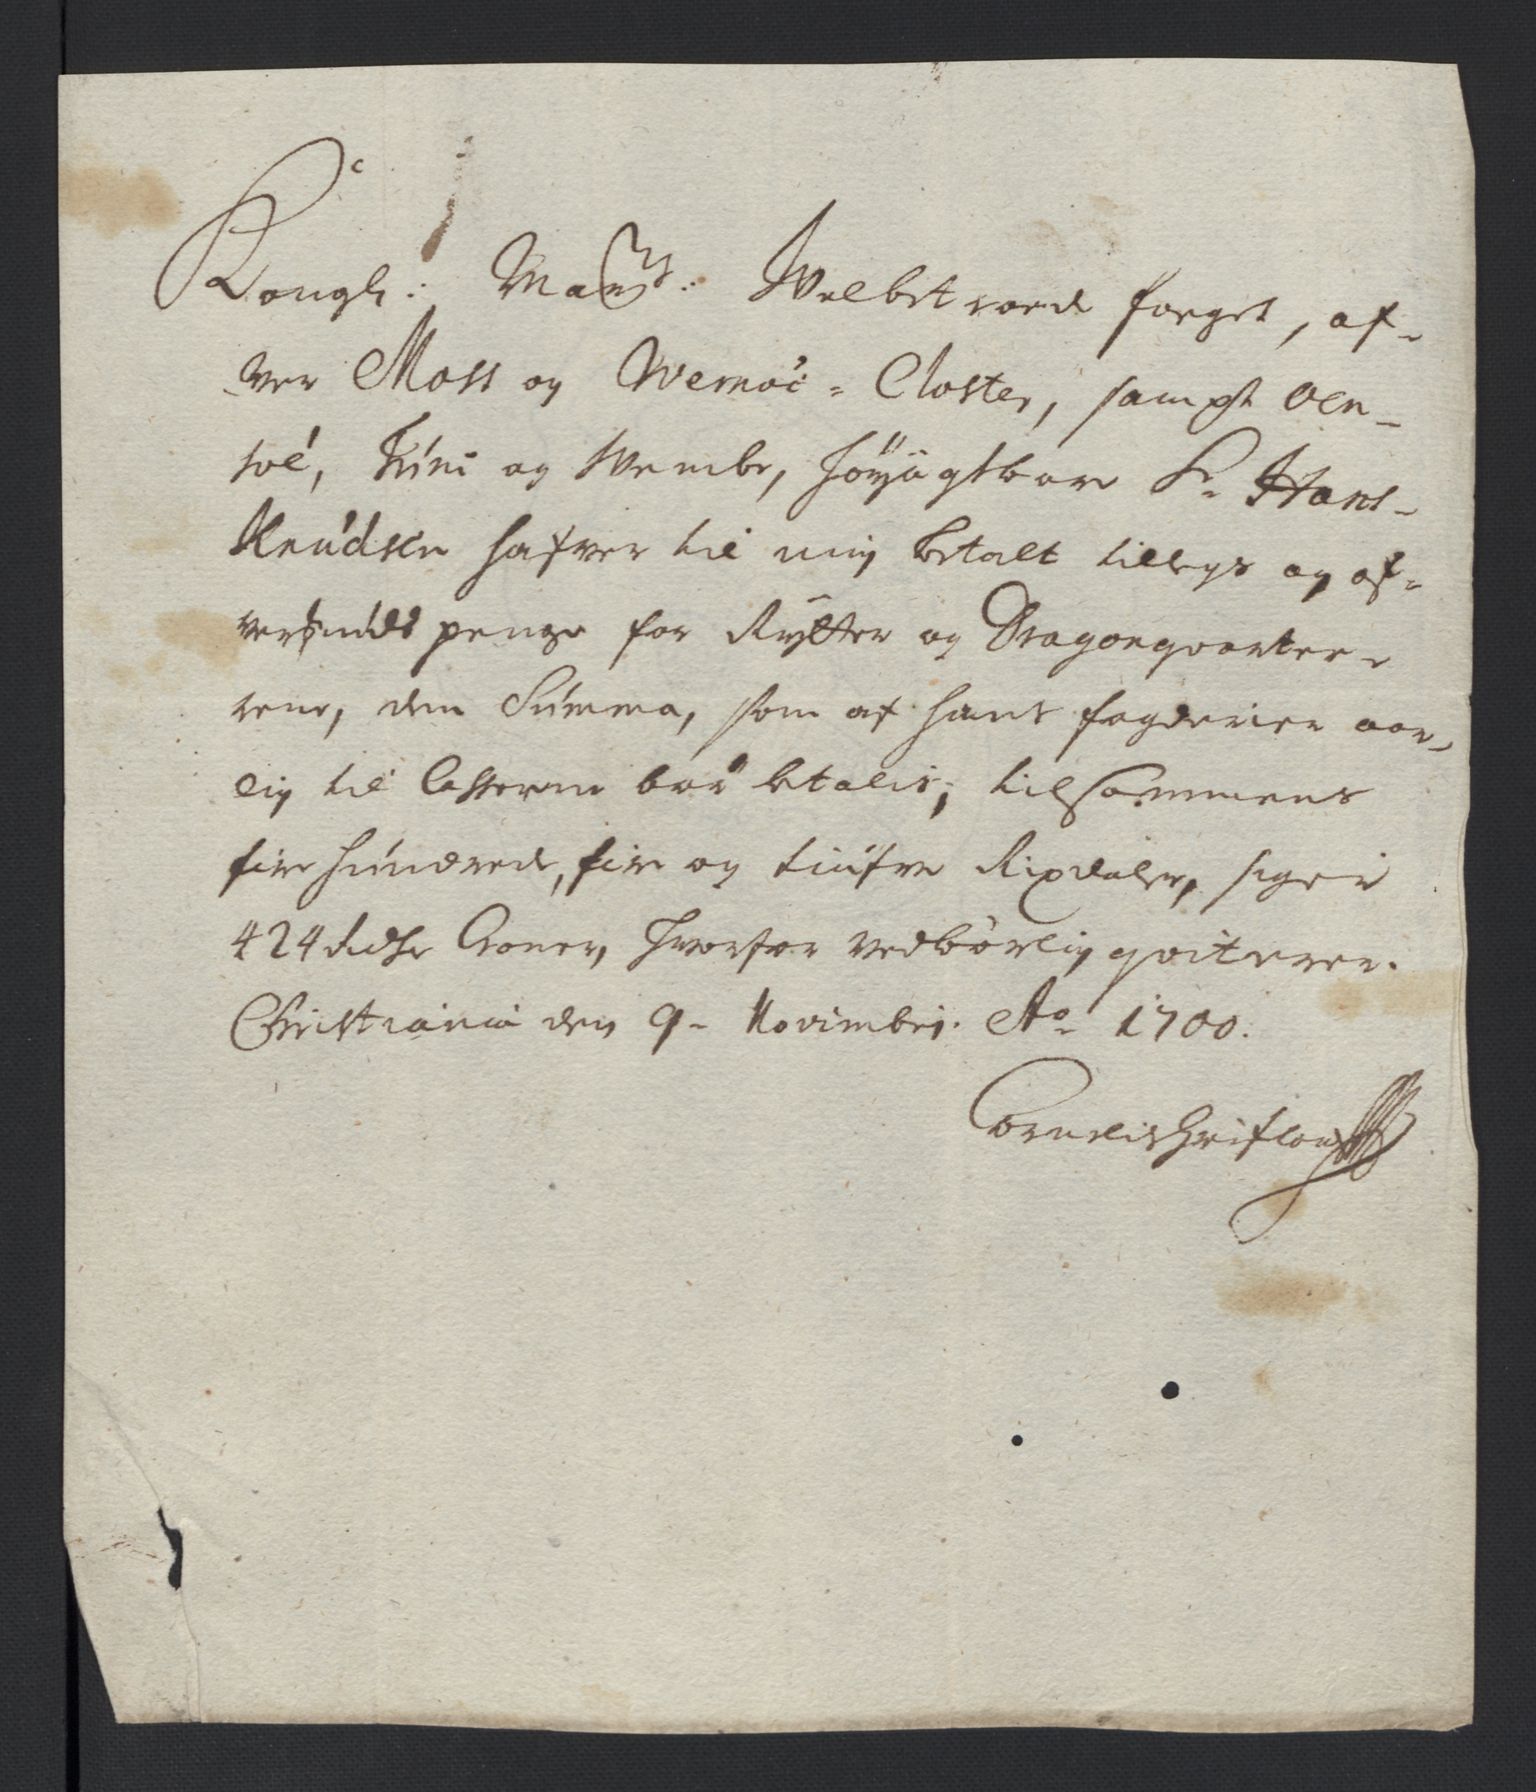 Kongl: Mayts: Welbetroede foeget, of-
ver Moss og Wernöe-Closter, sampt Oen-
söe, Tune og Wembe, höyagtbare Sr. Hans-
Knudsen hafver til mig betalt tillegs og of-
verskuds penge for Rytter og Dragonqvarter-
rene, den Summa, som af hans fogderier aar-
lig til Casserne bör betalis, tilsammens
fire hundrede, fire og tiufve Rixdaler, siger
424 Croner, hvorfor vedbörlig qviterer.
Christiania den 9. Novimbri. Ao 1700.